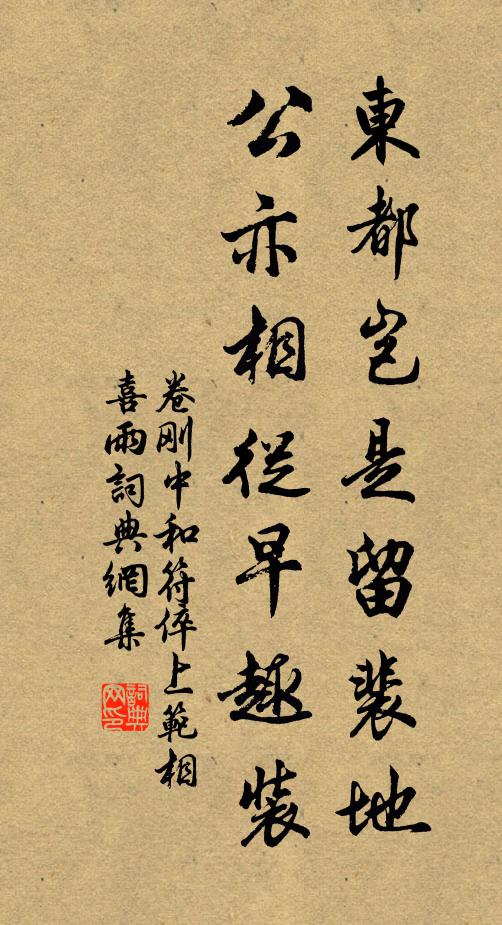 東都豈是留裴地
公亦相從早趣裝
卷剛中和符倅上範相
喜雨詞典網集
詞典网印